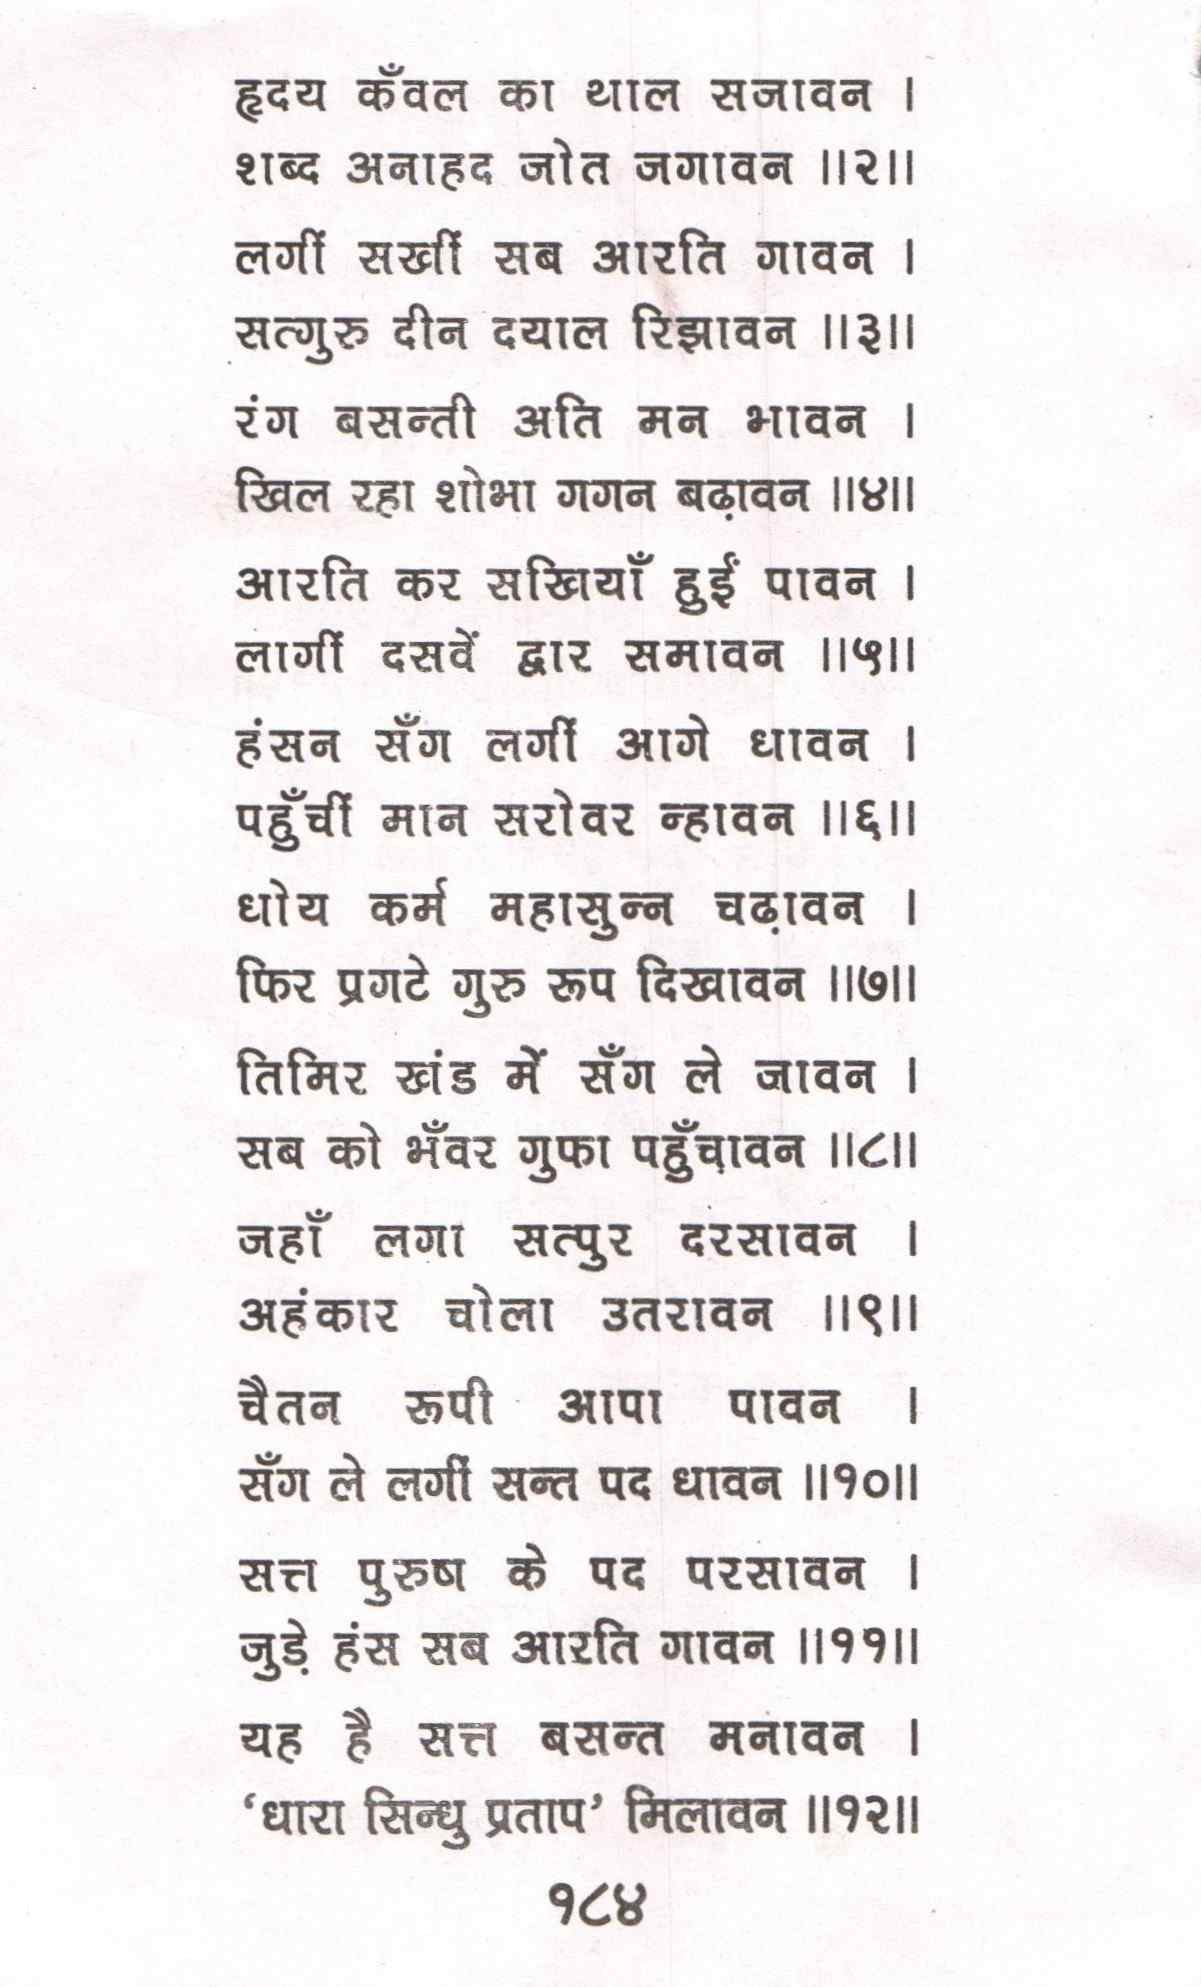 हृदय कँवल का थाल सजावन ।
शब्द अनाहद जोत जगावन ॥२॥
लगीं सखीं सब आरति गावन ।
सत्गुरु दीन दयाल रिझावन ॥३॥
रंग बसन्ती अति मन भावन ।
खिल रहा शोभा गगन बढ़ावन ॥४॥
आरति कर सखियाँ हुईं पावन ।
लागीं दसवें द्वार समावन ॥५॥
हंसन सँग लगीं आगे धावन ।
पहुँचीं मान सरोवर न्हावन ॥६॥
धोय कर्म महासुन्न चढ़ावन ।
फिर प्रगटे गुरु रूप दिखावन ॥७॥
तिमिर खंड में सँग ले जावन ।
सब को भँवर गुफा पहुँचावन ॥८॥
जहाँ लगा सत्पुर दरसावन ।
अहंकार चोला उतरावन ॥९॥
चैतन रूपी आपा पावन ।
सँग ले लगीं सन्त पद धावन ॥१०॥
सत्त पुरुष के पद परसावन ।
जुड़े हंस सब आरति गावन ॥११॥
यह है सत्त बसन्त मनावन ।
‘धारा सिन्धु प्रताप’ मिलावन ॥१२॥
१८४